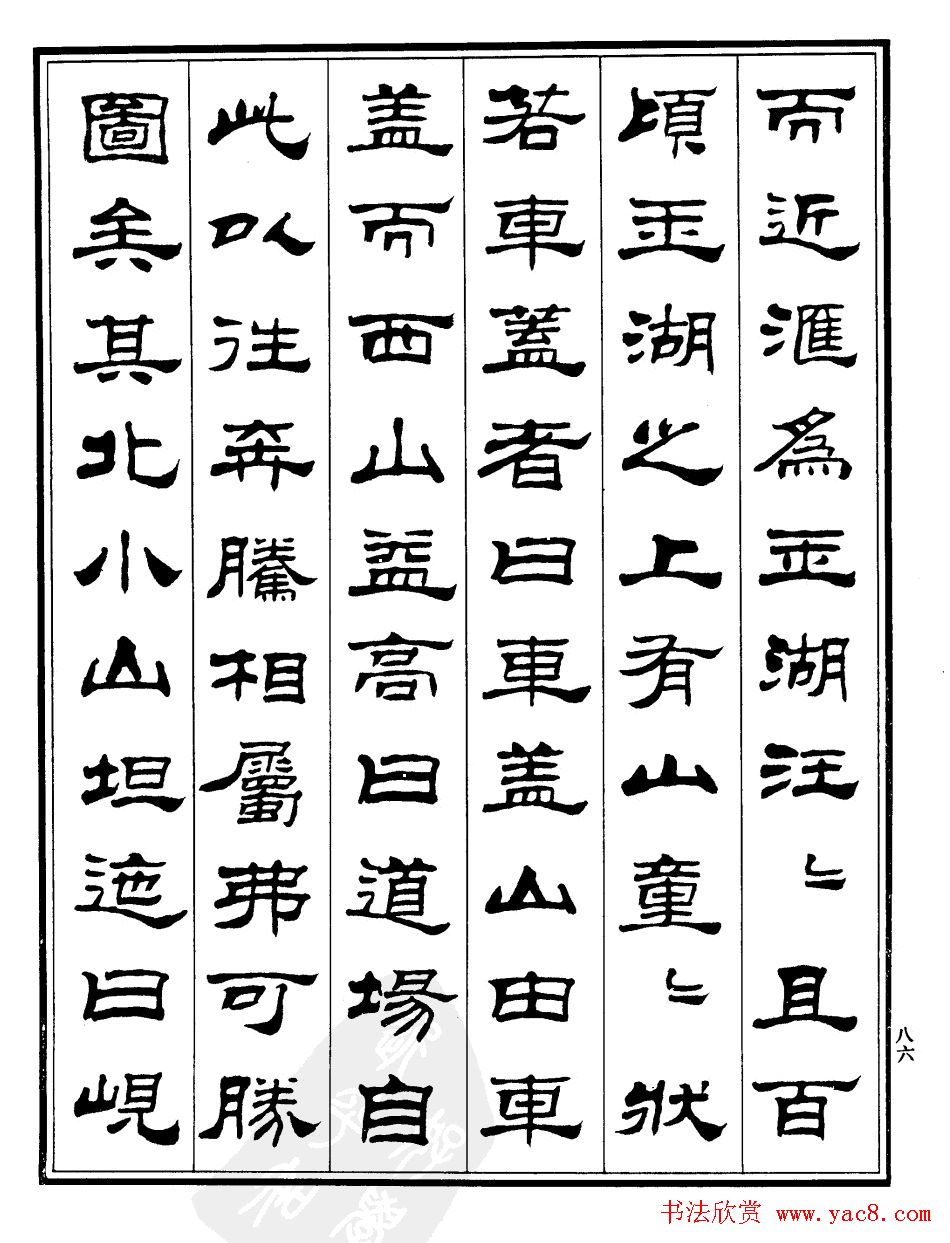 而近滙為玉湖汪〻且百
頃玉湖之上有山童〻狀
若車蓋者曰車盖山由車
盖而西山益高曰道場自
此以往奔騰相屬弗可勝
圖矣其北小山坦迤曰峴
八六
书法欣赏 www.yac8.com